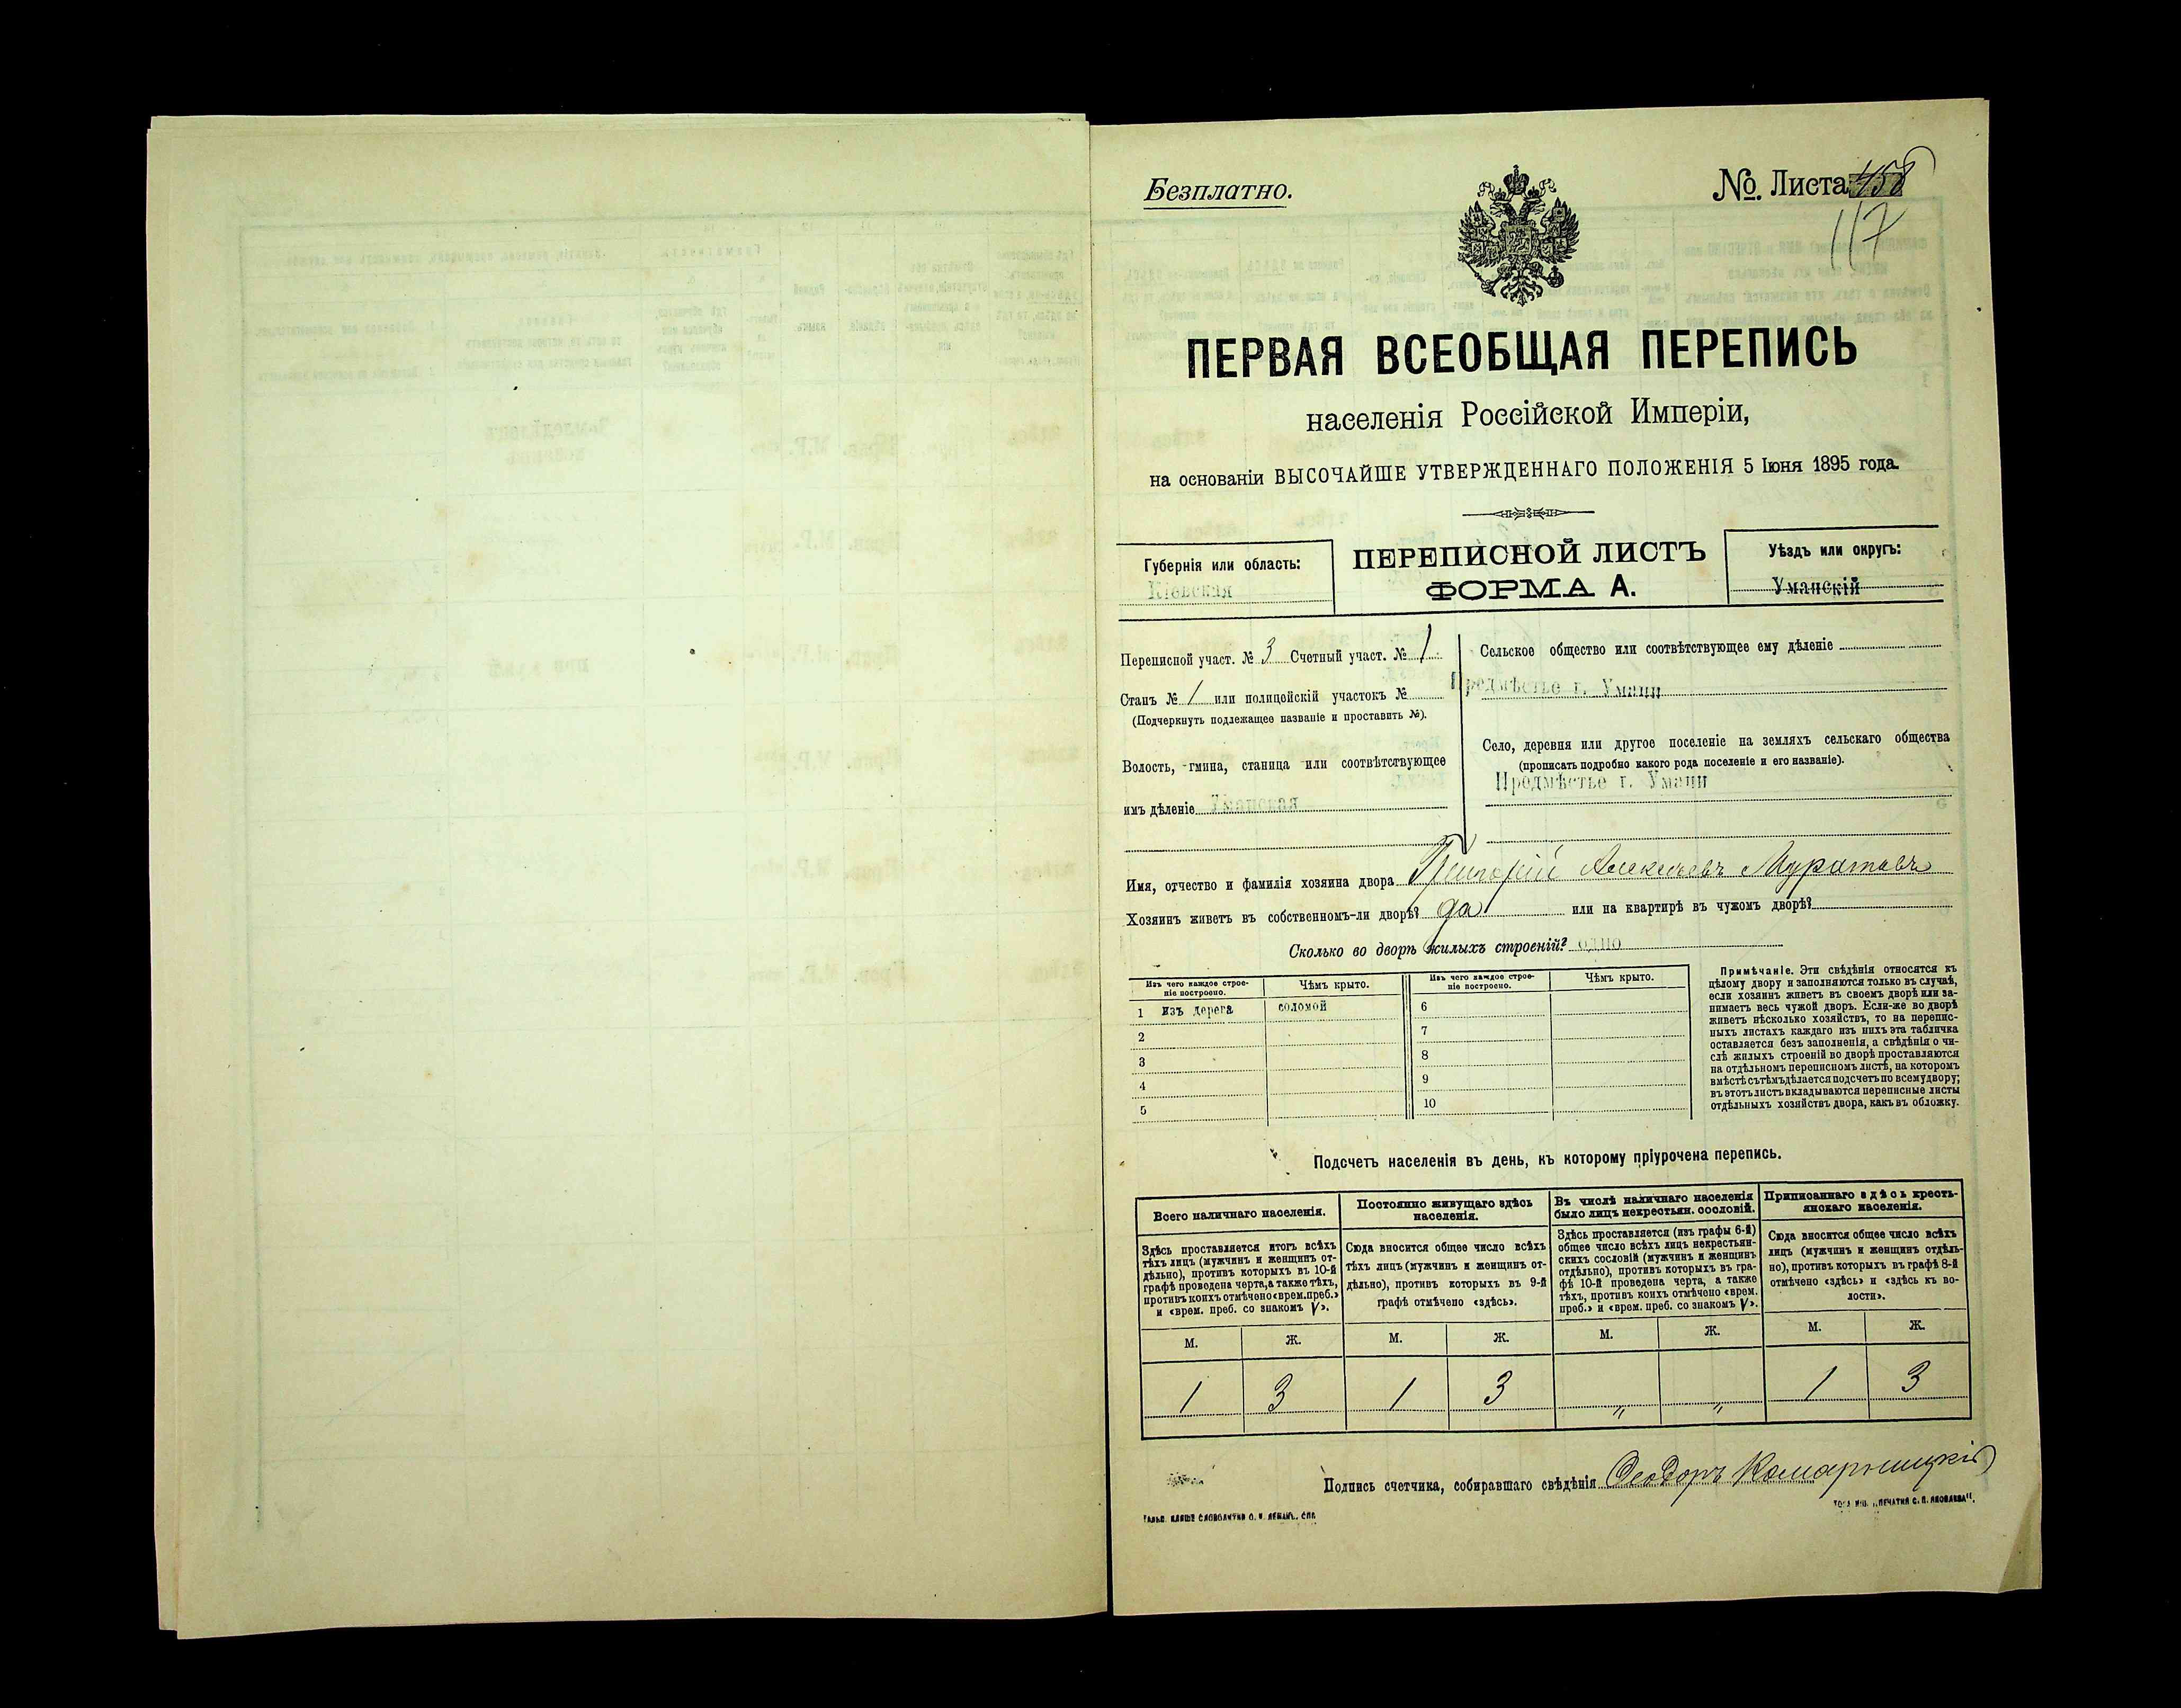 Безплатно.
№ Листа 458
117
ПЕРВАЯ ВСЕОБЩАЯ ПЕРЕПИСЬ
населенія Россійской Имперіи,
на основаніи ВЫСОЧАЙШЕ УТВЕРЖДЕННАГО ПОЛОЖЕНІЯ 5 Іюня 1895 года.
Губернія или область:
Кіевская
ПЕРЕПИСНОЙ ЛИСТЪ
ФОРМА А.
Уѣздъ или округъ:
Уманскій
Переписной участ. № 3 Счетный участ. № 1
Станъ № 1 или полицейскій участокъ №
(Подчеркнуть подлежащее названіе и проставить №).
Волость, гмина, станица или соотвѣтствующее
имъ дѣленіе Уманская
Сельское общество или соотвѣтствующее ему дѣленіе
Предмѣстье г. Умани
Село, деревня или другое поселеніе на земляхъ сельскаго общества
(прописать подробно какого рода поселеніе и его названіе).
Предмѣстье г. Умани
Имя, отчество и фамилія хозяина двора Григорій Алексѣевъ Муратовъ
Хозяинъ живетъ въ собственномъ-ли дворѣ? да или на квартирѣ въ чужомъ дворѣ?
Сколько во дворѣ жилыхъ строеній? одно
Изъ чего каждое строе-
ніе построено.
Чѣмъ крыто.
Изъ чего каждое строе-
ніе построено.
Чѣмъ крыто.
1 изъ дерева соломой 6
2 7
3 8
4 9
5 10
Примѣчаніе. Эти свѣдѣнія относятся къ
цѣлому двору и заполняются только въ случаѣ,
если хозяинъ живетъ въ своемъ дворѣ или за-
нимаетъ весь чужой дворъ. Если-же во дворѣ
живетъ нѣсколько хозяйствъ, то на перепис-
ныхъ листахъ каждаго изъ нихъ эта табличка
оставляется безъ заполненія, а свѣдѣнія о чи-
слѣ жилыхъ строеній во дворѣ проставляются
на отдѣльномъ переписномъ листѣ, на которомъ
вмѣстѣ съ тѣмъ дѣлается подсчетъ по всему двору;
въ этотъ листъ вкладываются переписные листы
отдѣльныхъ хозяйствъ двора, какъ въ обложку.
Подсчетъ населенія въ день, къ которому пріурочена перепись.
Всего наличнаго населенія.
Здѣсь проставляется итогъ всѣхъ
тѣхъ лицъ (мужчинъ и женщинъ от-
дѣльно), противъ которыхъ въ 10-й
графѣ проведена черта, а также тѣхъ,
противъ коихъ отмѣчено «врем. преб.»
и «врем. преб. со знакомъ V».
Постоянно живущаго здѣсь
населенія.
Сюда вносится общее число всѣхъ
тѣхъ лицъ (мужчинъ и женщинъ от-
дѣльно), противъ которыхъ въ 9-й
графѣ отмѣчено «здѣсь».
Въ числѣ наличнаго населенія
было лицъ некрестьян. сословій.
Здѣсь проставляется (изъ графы 6-й)
общее число всѣхъ лицъ некрестьян-
скихъ сословій (мужчинъ и женщинъ
отдѣльно), противъ которыхъ въ гра-
фѣ 10-й проведена черта, а также
тѣхъ, противъ коихъ отмѣчено «врем.
преб.» и «врем. преб. со знакомъ V».
Приписаннаго здѣсь кресть-
янскаго населенія.
Сюда вносится общее число всѣхъ
лицъ (мужчинъ и женщинъ отдѣль-
но), противъ которыхъ въ графѣ 8-й
отмѣчено «здѣсь» и «здѣсь къ во-
лости».
М. Ж. М. Ж. М. Ж. М. Ж.
1 3 1 3 " " 1 3
Подпись счетчика, собиравшаго свѣдѣнія Ѳеодоръ Комарницкій